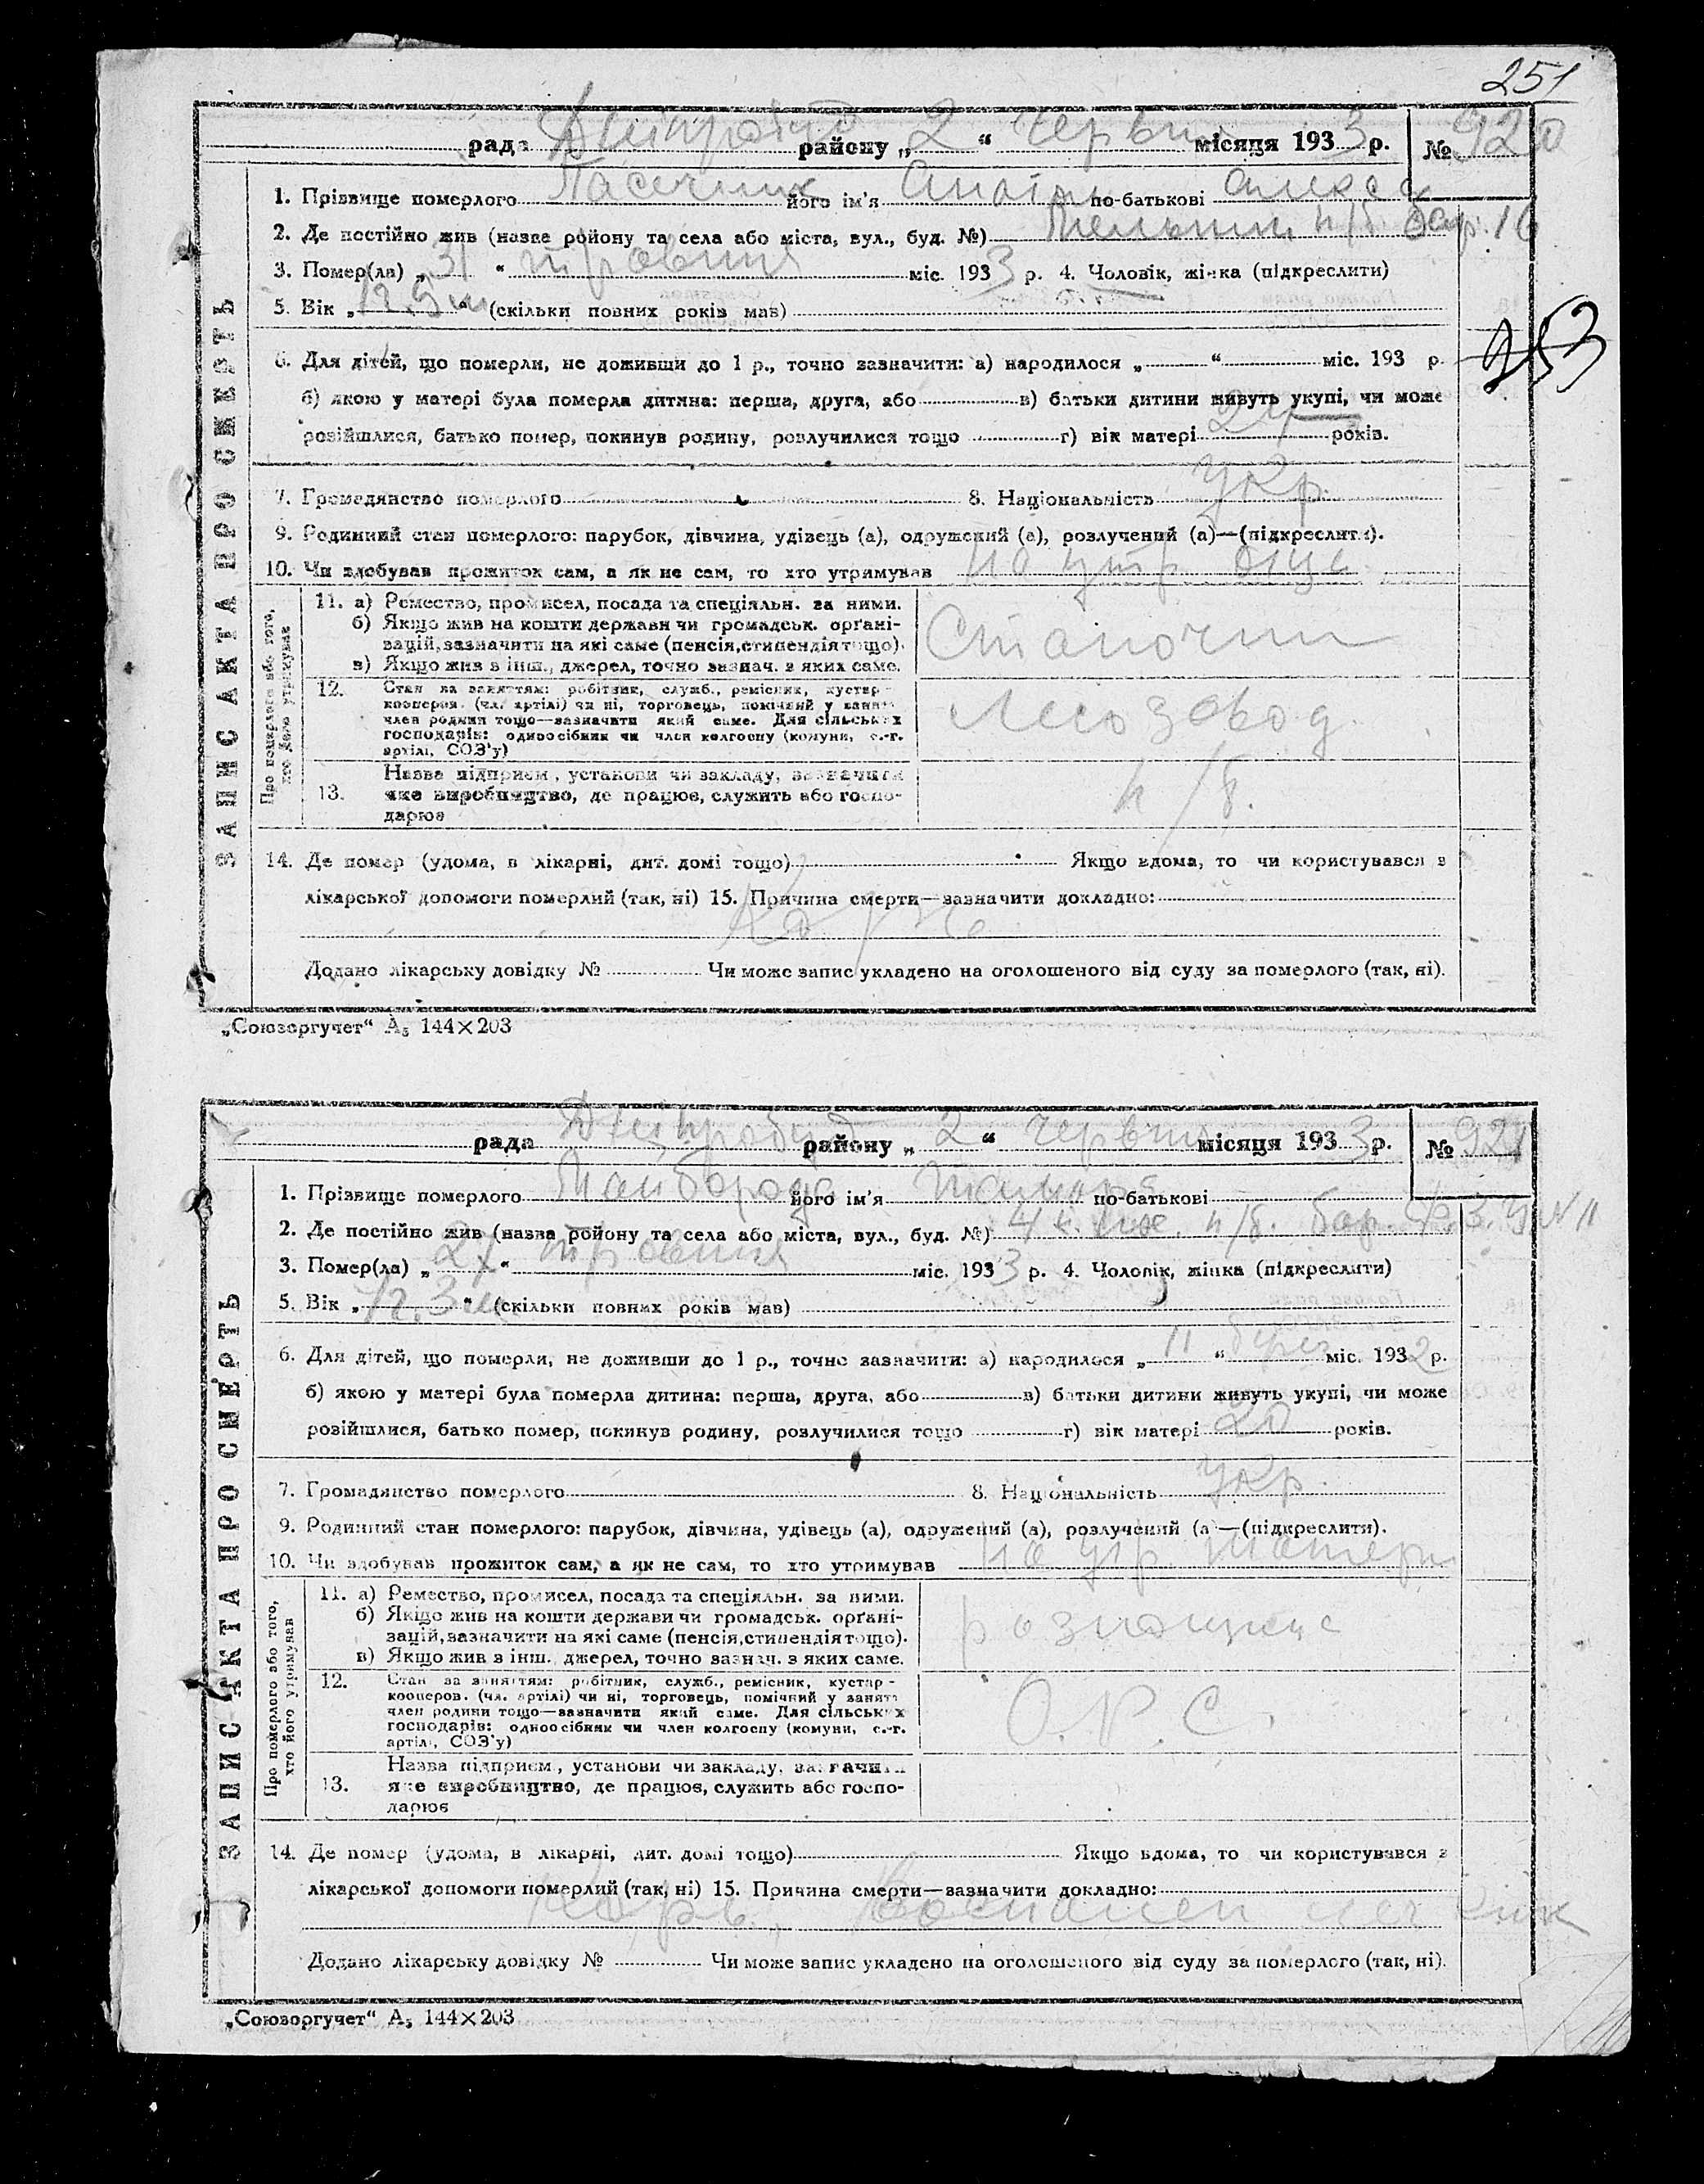 251
рада Дніпробуд району „ 2 “ червня місяця 193 3 р. № 920
1. Прізвище померлого Пасечник його ім'я Анатол по-батькові Алекс
2. Де постійно жив (назва ройону та села або міста, вул., буд. №) п/б. бар. 16
3. Помер(ла) „ 31 “ травня міс. 193 3 р. 4. Чоловік, жінка (підкреслити)
5. Вік „ 1 г. 9 м “ (скільки повних років мав)
253
6. Для дітей, що померли, не доживши до 1 р., точно зазначити: а) народилося „ “ міс. 193 р.
б) якою у матері була померла дитина: перша, друга, або в) батьки дитини живуть укупі, чи може
розійшлися, батько помер, покинув родину, розлучилися тощо г) вік матері 24 років.
7. Громадянство померлого 8. Національність укр.
9. Родинний стан померлого: парубок, дівчина, удівець (а), одружений (а), розлучений (а)—(підкреслити).
10. Чи здобував прожиток сам, а як не сам, то хто утримував на утр. отця
ЗАПИС АКТА ПРО СМЕРТЬ
Про померлого або того, хто його утримував
11. а) Ремество, промисел, посада та спеціяльн. за ними.
б) Якщо жив на кошти держави чи громадськ. орґані-
зацій, зазначити на які саме (пенсія, стипендія тощо).
в) Якщо жив з інш. джерел, точно зазнач. з яких саме.
Станочник
12. Стан за заняттям: робітник, служб., ремісник, кустар-
кооперов. (чл. артілі) чи ні, торговець, помічний у занятт.
член родини тощо—зазначити який саме. Для сільських
господарів: одноосібник чи член колгоспу (комуни, с.-г.
артілі, СОЗ'у)
Лесозавод
13. Назва підприєм., установи чи закладу, зазначити
яке виробництво, де працює, служить або госпо-
дарює
п/б.
14. Де помер (удома, в лікарні, дит. домі тощо) Якщо вдома, то чи користувався з
лікарської допомоги померлий (так, ні) 15. Причина смерти—зазначити докладно:
Корь
Додано лікарську довідку № Чи може запис укладено на оголошеного від суду за померлого (так, ні).
„Союзоргучет“ А₅ 144×203
рада Дніпробуд району „ 2 “ червня місяця 193 3 р. № 921
1. Прізвище померлого Майборода його ім'я Тамара по-батькові
2. Де постійно жив (назва ройону та села або міста, вул., буд. №) п/б. бар. № 11
3. Помер(ла) „ 27 “ травня міс. 193 3 р. 4. Чоловік, жінка (підкреслити)
5. Вік „ 1 г. 3 м “ (скільки повних років мав)
6. Для дітей, що померли, не доживши до 1 р., точно зазначити: а) народилося „ 11 “ берез міс. 193 2 р.
б) якою у матері була померла дитина: перша, друга, або в) батьки дитини живуть укупі, чи може
розійшлися, батько помер, покинув родину, розлучилися тощо г) вік матері 20 років.
7. Громадянство померлого 8. Національність укр.
9. Родинний стан померлого: парубок, дівчина, удівець (а), одружений (а), розлучений (а)—(підкреслити).
10. Чи здобував прожиток сам, а як не сам, то хто утримував на утр матери
ЗАПИС АКТА ПРО СМЕРТЬ
Про померлого або того, хто його утримував
11. а) Ремество, промисел, посада та спеціяльн. за ними.
б) Якщо жив на кошти держави чи громадськ. орґані-
зацій, зазначити на які саме (пенсія, стипендія тощо).
в) Якщо жив з інш. джерел, точно зазнач. з яких саме.
12. Стан за заняттям: робітник, служб., ремісник, кустар-
кооперов. (чл. артілі) чи ні, торговець, помічний у занятт.
член родини тощо—зазначити який саме. Для сільських
господарів: одноосібник чи член колгоспу (комуни, с.-г.
артілі, СОЗ'у)
О.Р.С.
13. Назва підприєм., установи чи закладу, зазначити
яке виробництво, де працює, служить або госпо-
дарює
14. Де помер (удома, в лікарні, дит. домі тощо) Якщо вдома, то чи користувався з
лікарської допомоги померлий (так, ні) 15. Причина смерти—зазначити докладно:
Корь, Воспален легких
Додано лікарську довідку № Чи може запис укладено на оголошеного від суду за померлого (так, ні).
„Союзоргучет“ А₅ 144×203